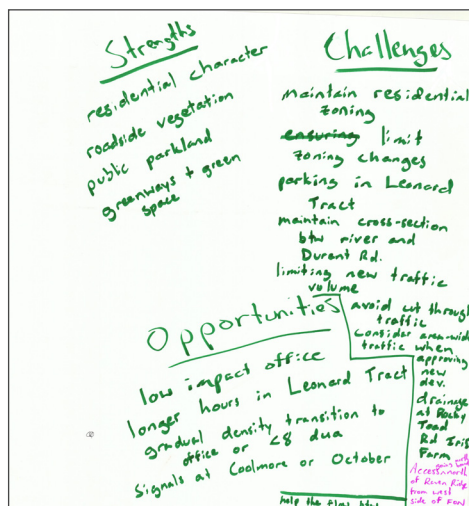 Strengths
residential character
roadside vegetation
public parkland
greenways + green
space
Challenges
maintain residential
zoning
ensuring limit
zoning changes
parking in Leonard
Tract
maintain cross-section
btw river and
Durant Rd.
limiting new traffic
volume
avoid cut through
traffic
consider area-wide
traffic when
approving
new
dev.
drainage
at Rocky
Toad
Rd Iris
Farm
Access north
of Raven Ridge
from west
side of Fon
Opportunities
low impact office
longer hours in Leonard Tract
gradual density transition to
office or <8 dua
Signals at Coolmore or October
help the flow btw